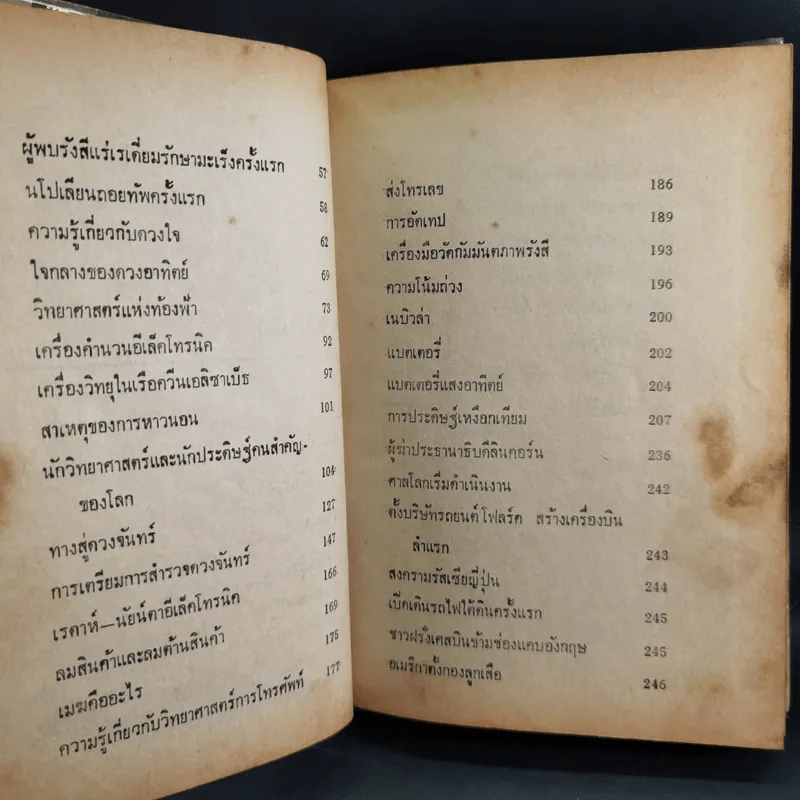 ผู้พบรังสีแร่เรเดี่ยมรักษามะเร็งครั้งแรก 57
นโปเลียนถอยทัพครั้งแรก 58
ความรู้เกี่ยวกับดวงใจ 62
ใจกลางของดวงอาทิตย์ 69
วิทยาศาสตร์แห่งท้องฟ้า 73
เครื่องคำนวนอีเล็คโทรนิค 92
เครื่องวิทยุในเรือควีนเอลิซาเบ็ธ 97
สาเหตุของการหาวนอน 101
นักวิทยาศาสตร์และนักประดิษฐ์คนสำคัญ-
ของโลก 104
ทางสู่ดวงจันทร์ 127
การเตรียมการสำรวจดวงจันทร์ 147
เรดาห์—นัยน์ตาอีเล็คโทรนิค 166
ลมสินค้าและลมต้านสินค้า 169
เมฆคืออะไร 175
ความรู้เกี่ยวกับวิทยาศาสตร์การโทรศัพท์ 177
ส่งโทรเลข 186
การอัดเทป 189
เครื่องมือวัดกัมมันตภาพรังสี 193
ความโน้มถ่วง 196
เนบิวล่า 200
แบตเตอรี่ 202
แบตเตอรี่แสงอาทิตย์ 204
การประดิษฐ์เหงือกเทียม 207
ผู้ฆ่าประธานาธิบดีลินคอร์น 236
ศาลโลกเริ่มดำเนินงาน 242
ตั้งบริษัทรถยนต์โฟลร์ด สร้างเครื่องบิน
ลำแรก 243
สงครามรัสเซียญี่ปุ่น 244
เปิดเดินรถไฟใต้ดินครั้งแรก 245
ชาวฝรั่งเศสบินข้ามช่องแคบอังกฤษ 245
อเมริกาตั้งกองลูกเสือ 246